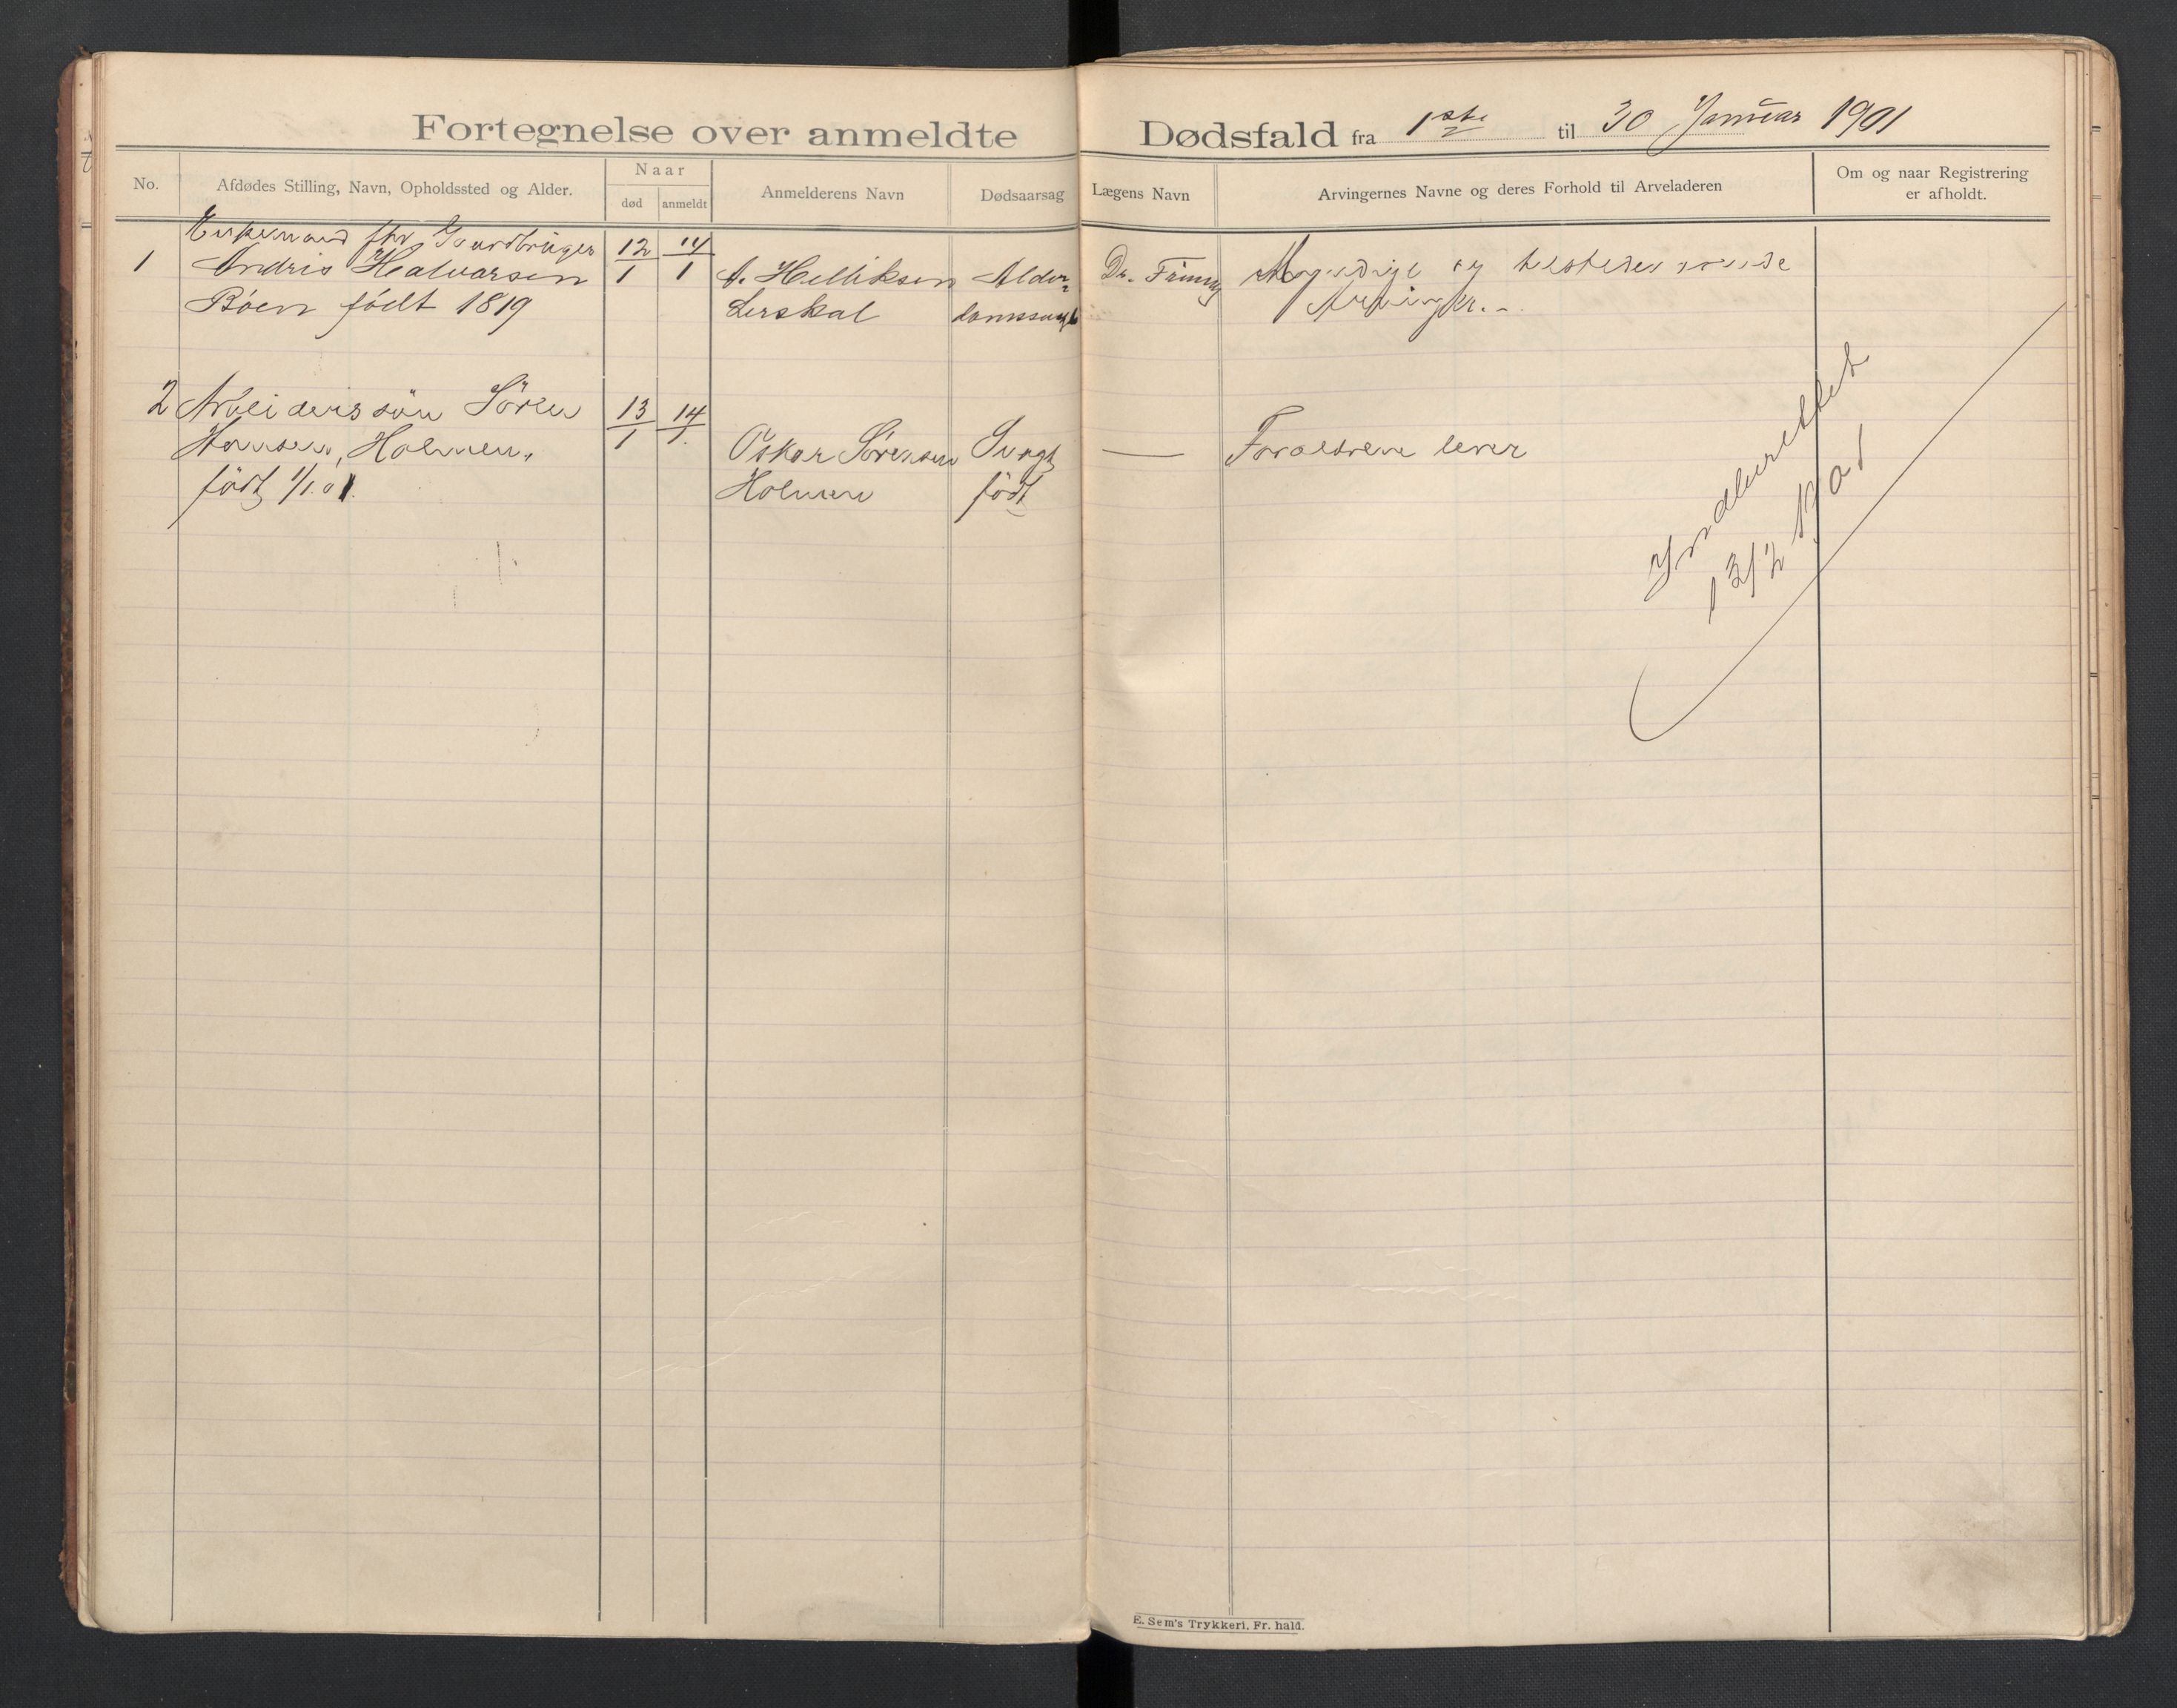 Fortegnelse over anmeldte Dødsfald fra 1ste til 30 Januar 1901
No.
Afdødes Stilling, Navn, Opholdssted og Alder.
Naar
død
anmeldt
Anmelderens Navn
Dødsaarsag
Lægens Navn
Arvingernes Navne og deres Forhold til Arveladeren
Om og naar Registrering
er afholdt.
1
Enkemand fhv Gaardbruger
Andris Halvorsen
Böen födt 1819
12/1
14/1
A. Helliksen
Lerskal
Alder-
domssvagh
Dr.
Myndige og tilstedeværende
Arvinger.-
2
Arbeiderssön Sören
Hansen, Holmen,
födt 1/1.01.
13/1
14/1.
Oskar Sörensen
Holmen
Svagt
födt
—
Forældrene lever
Indberettet
13/2 1901
E. Sem's Trykkeri, Fr. hald.